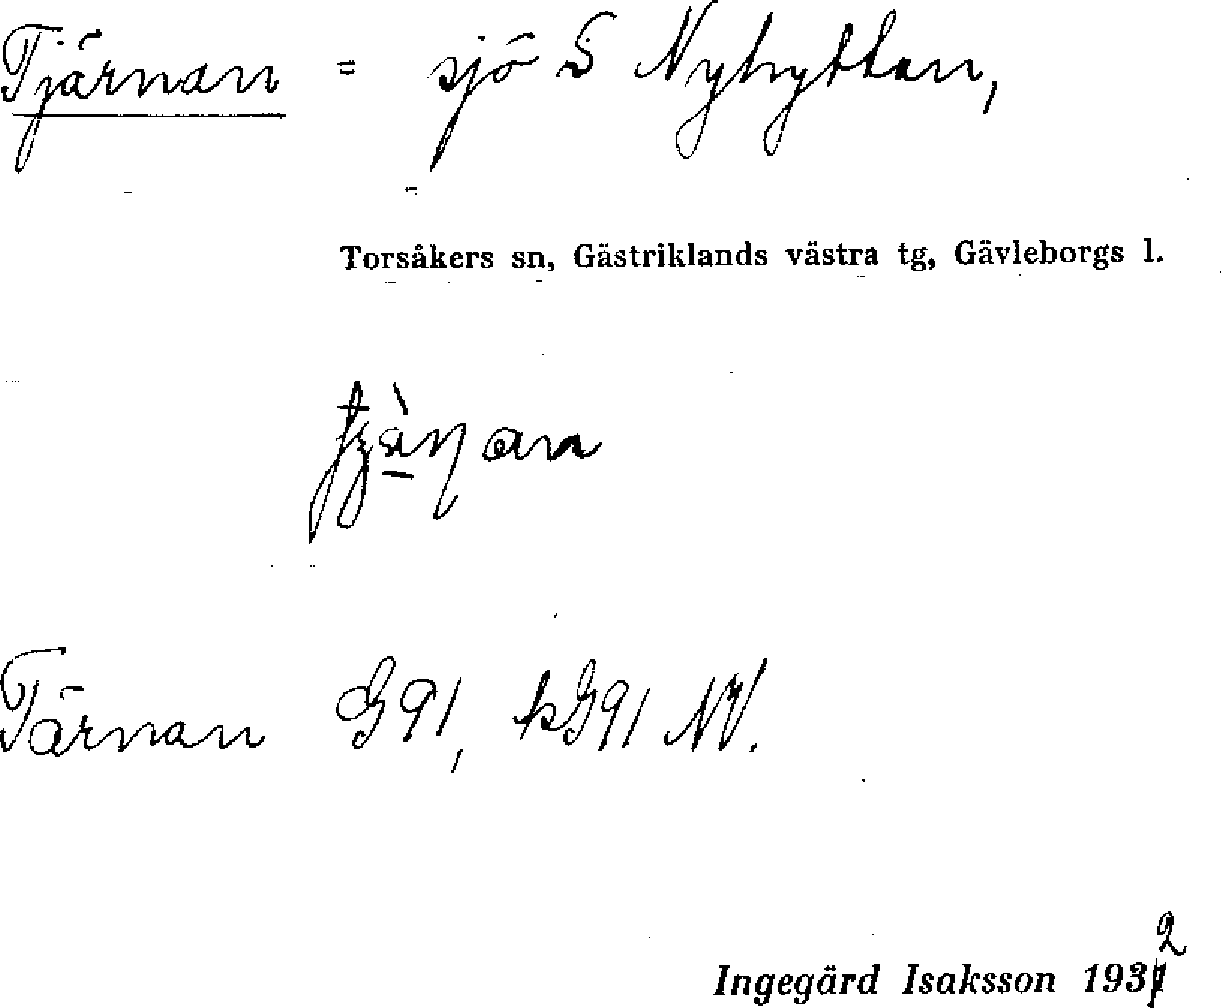 Tjärnan = sjö S Nyhyttan,
Torsåkers sn, Gästriklands västra tg, Gävleborgs l.
Tärnan G91, kG91 NV.
Ingegärd Isaksson 1932